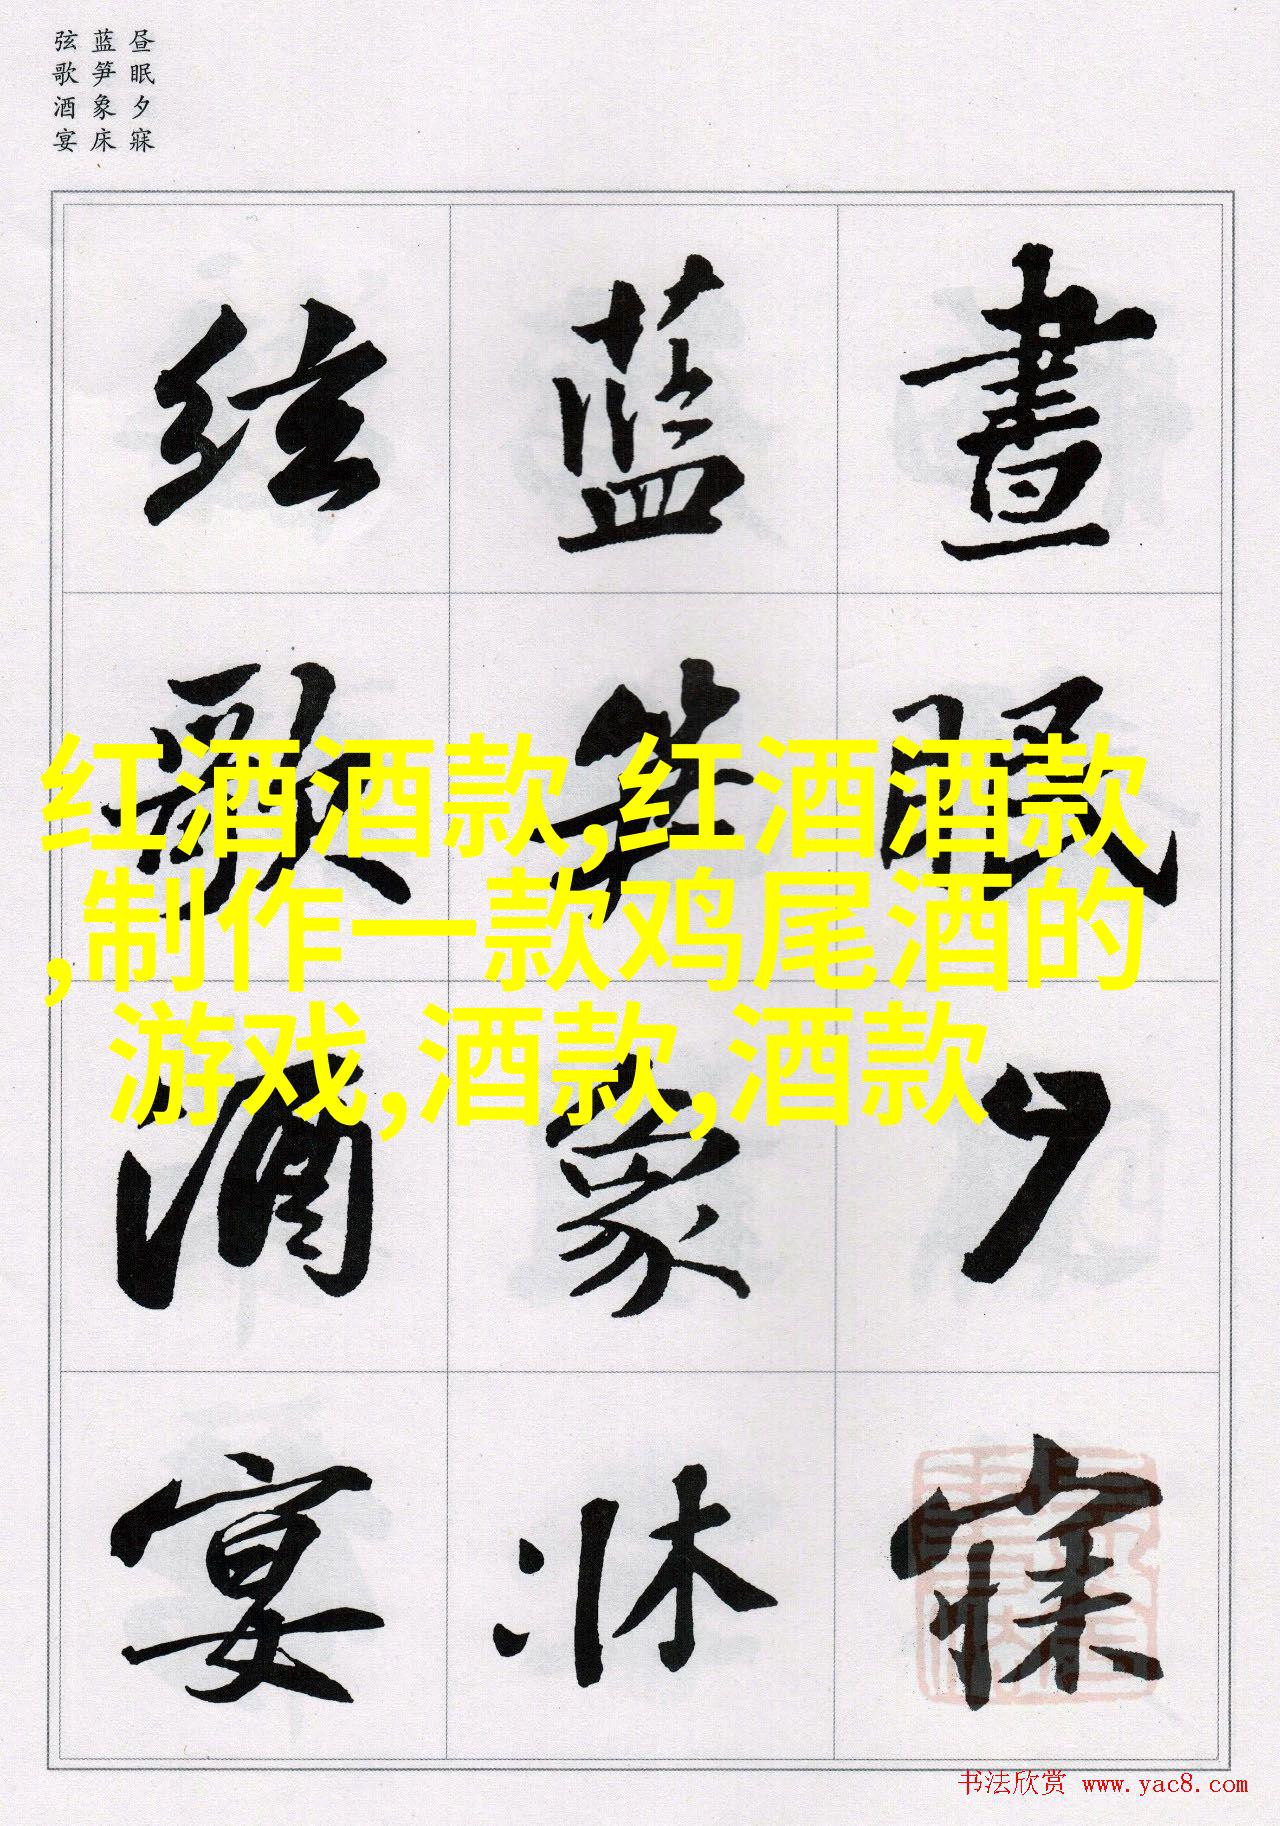 昼眠夕寐
蓝笋象床
弦歌酒宴
晝眠夕寐
蓝笋象牀
弦歌酒宴
红酒酒款,红酒酒款
,制作一款鸡尾酒的
游戏,酒款,酒款
书法欣赏 www.yac8.com